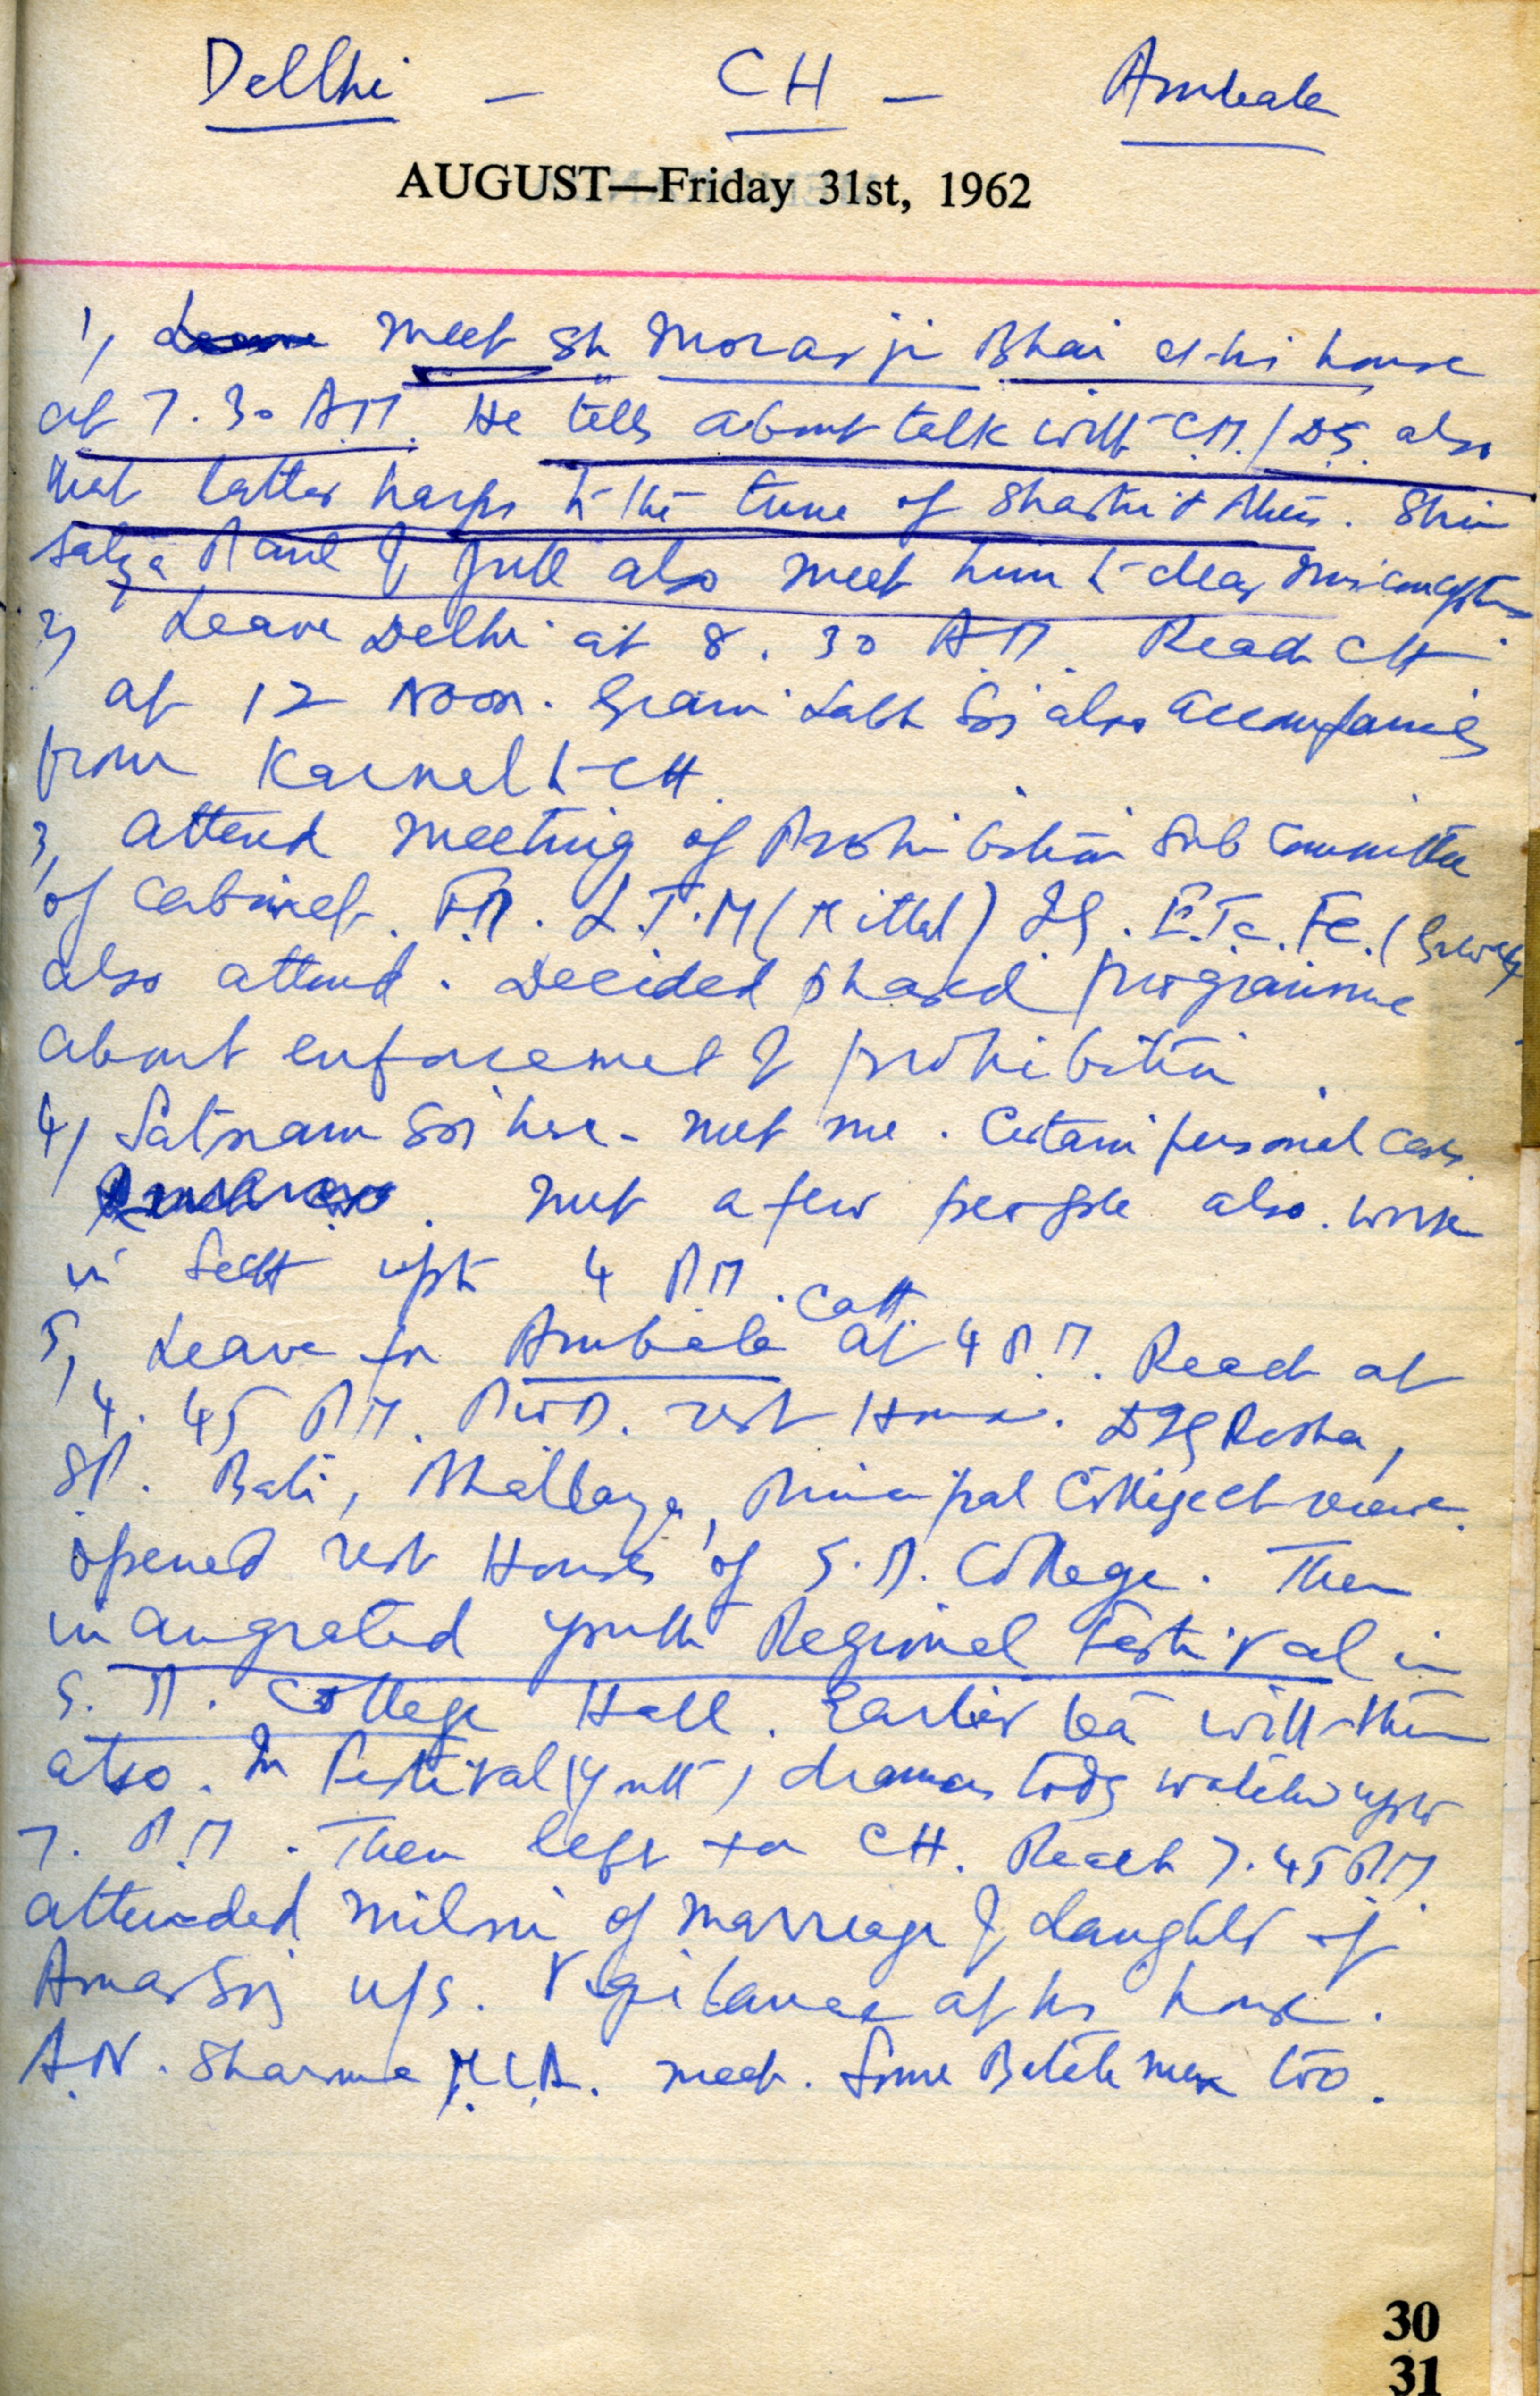 Dellhi - CH - Ambala
AUGUST—Friday 31st, 1962
1, meet Sh Morarji Bhai at his house
at 7.30 A.M. He tells about talk with C.M./DS also
that latter harps to the tune of Shastri & others. Shri
Satya &  also meet him to clear misconceptions.
2, Leave Delhi at 8.30 A.M. Reach CH
at 12 Noon. Giani Labh Sgj also accompanies
from Karnal to CH.
3, attend meeting of Prohibition Sub Committee
of cabinet. F.M. L.T.M (Mittal) IG. E.T.C. FC. (
also attend. Decided phased programme
about enforcement of prohibition.
4, Satnam Sgj here - met me. Certain personal cases.
met a few people also. work
in Sectt upto 4 P.M.
5, Leave for Ambala Catt at 4 P.M. Reach at
4.45 P.M. P.W.D. rest House. DIG
S.P. Bali, Principal College etc receive.
opened rest House of S.D. College. Then
inaugrated youth Regional Festival in
S.D. College Hall. Earlier tea with them
also. In Festival (youth) dramas today watched upto
7. P.M. Then left for CH. Reach 7.45 P.M.
attended milni of marreage of daughter of
Amar Sgj u/s. Vigilance at his house.
A.N. Sharma M.L.A. meet. Some Batch men too.
30
31